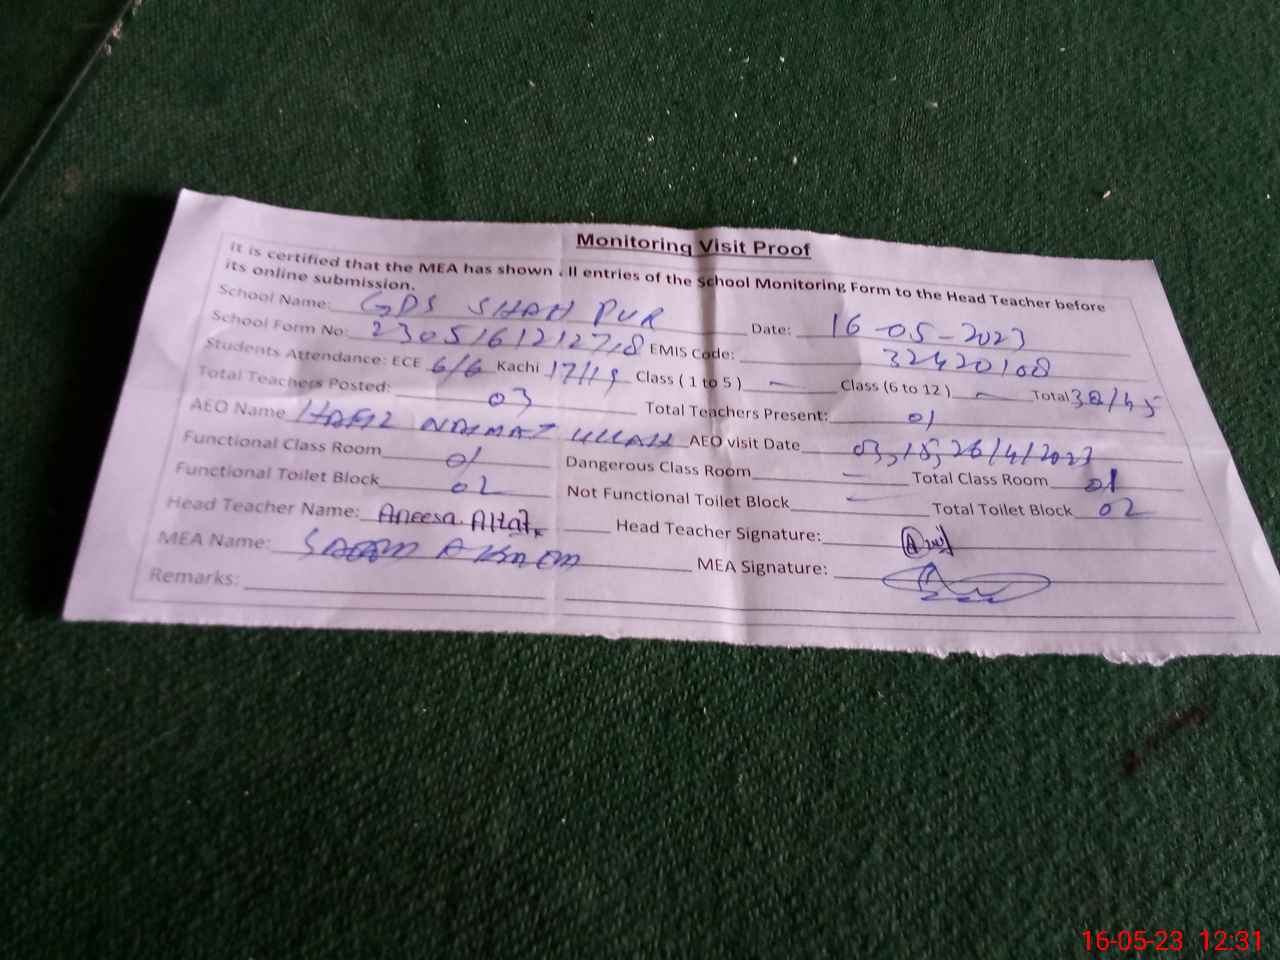 Monitoring Visit Proof
It is certified that the MEA has shown . ll entries of the School Monitoring Form to the Head Teacher before
its online submission.
School Name: GDS SHAH PUR Date: 16-05-2023
School Form No: EMIS Code: 32420108
Students Attendance: ECE 6/6 Kachi 17/19 Class ( 1 to 5 ) — Class (6 to 12 ) — Total 38/45
Total Teachers Posted: 03 Total Teachers Present: 01
AEO Name HAFIZ ULLAH AEO visit Date 03,18,26/4/2023
Functional Class Room 01 Dangerous Class Room — Total Class Room 01
Functional Toilet Block 02 Not Functional Toilet Block — Total Toilet Block 02
Head Teacher Name: Aneesa Altaf Head Teacher Signature:
MEA Name: MEA Signature:
Remarks:
16-05-23 12:31